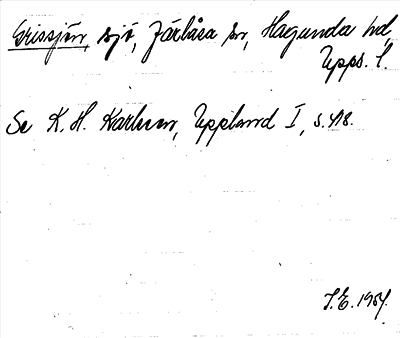 Grissjön, sjö, Järlåsa sn, Hagunda hd,
Upps. l.
Se K. H. Karlsson, Uppland I, s. 418.
I.E. 1954.